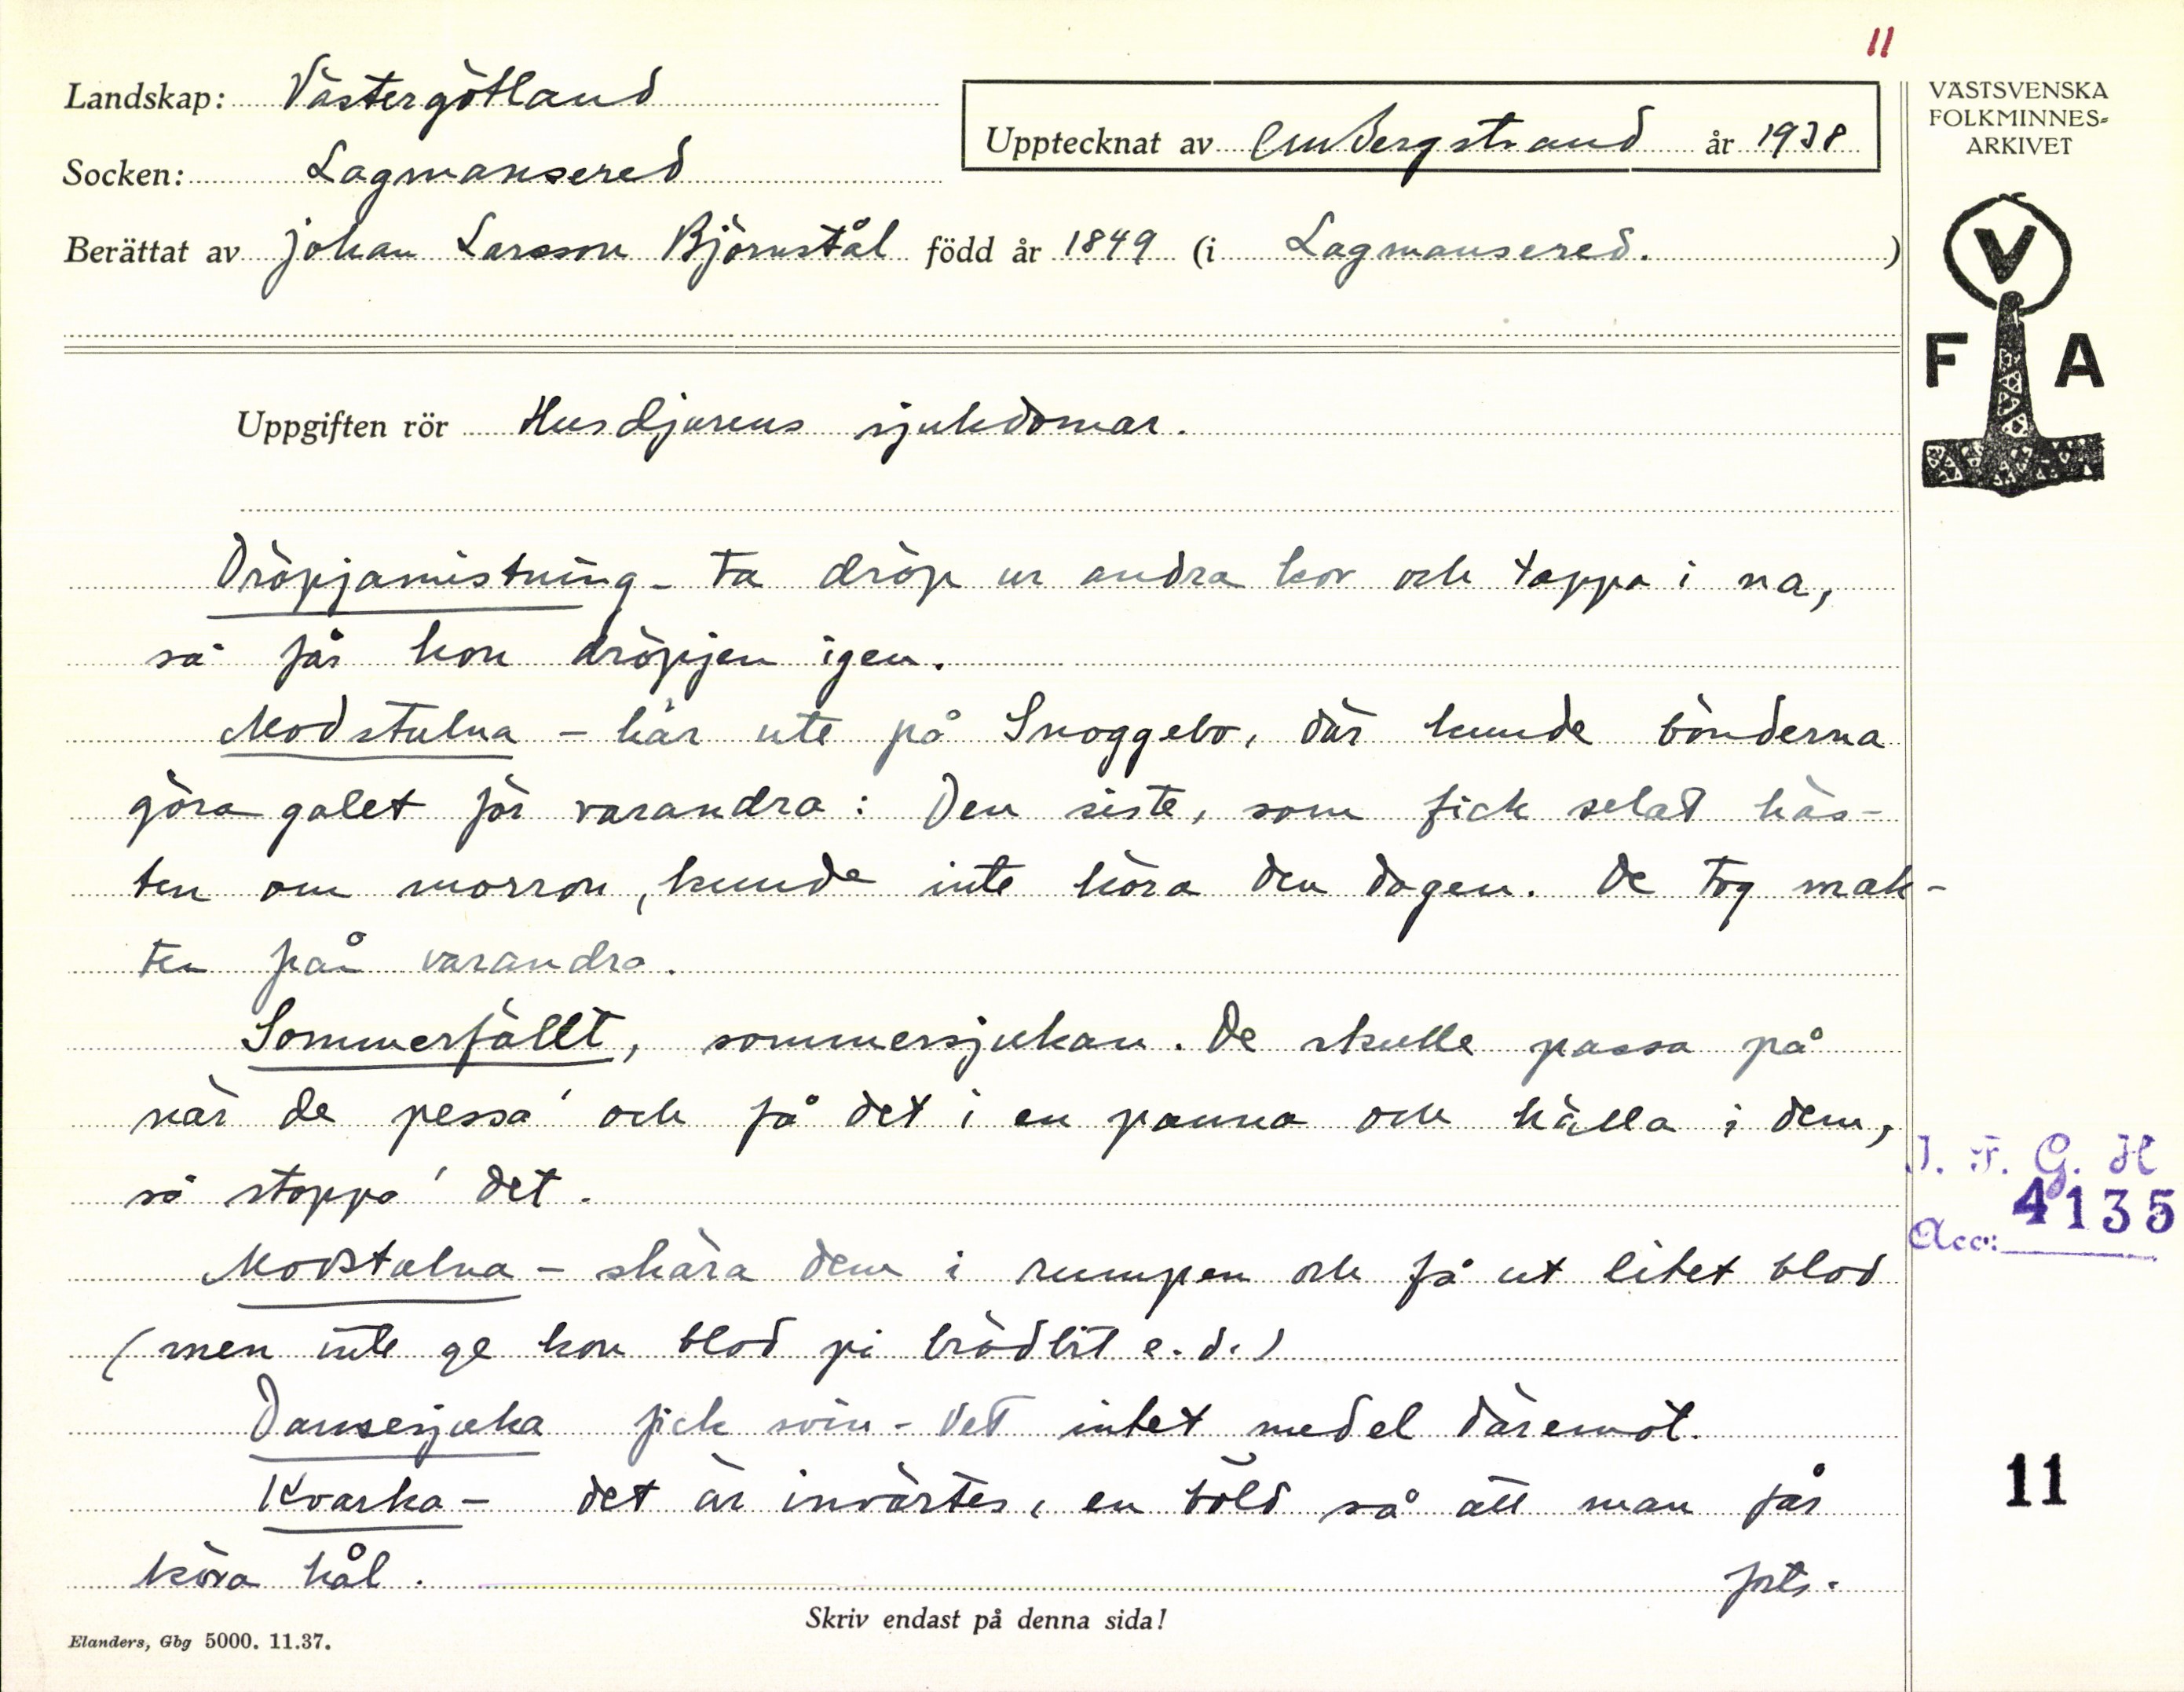 11
Landskap: Västergötland
Upptecknat av CMBergstrand år 1938
VÄSTSVENSKA
FOLKMINNES-
ARKIVET
Socken: Lagmansered
Berättat av Johan Larsson Björnstål född år 1849 (i Lagmansered.)
V
F A
Uppgiften rör Husdjurens sjukdomar.
Dröpjamistning - ta dröp ur andra kor och tappa i na,
så får kon dröpjen igen.
Modstulna - här ute på Snoggebo, där kunde bönderna
göra galet för varandra: Den siste, som fick selat häs-
ten om morron, kunde inte köra den dagen. De tog mak-
ten från varandra.
Sommerfällt, sommersjukan. De skulle passa på
när de pessa' och få det i en panna och hälla i dem,
så stoppa' det.
Modstulna - skära dem i rumpen och få ut litet blod
(men inte ge kon blod på brödbit e.d.)
Dansesjuka fick svin - Vet intet medel däremot.
Kvarka - det är invärtes, en böld så att man får
köra hål.
forts.
I. F. G. H
4135
Acc:
11
Skriv endast på denna sida!
Elanders, Gbg 5000. 11.37.